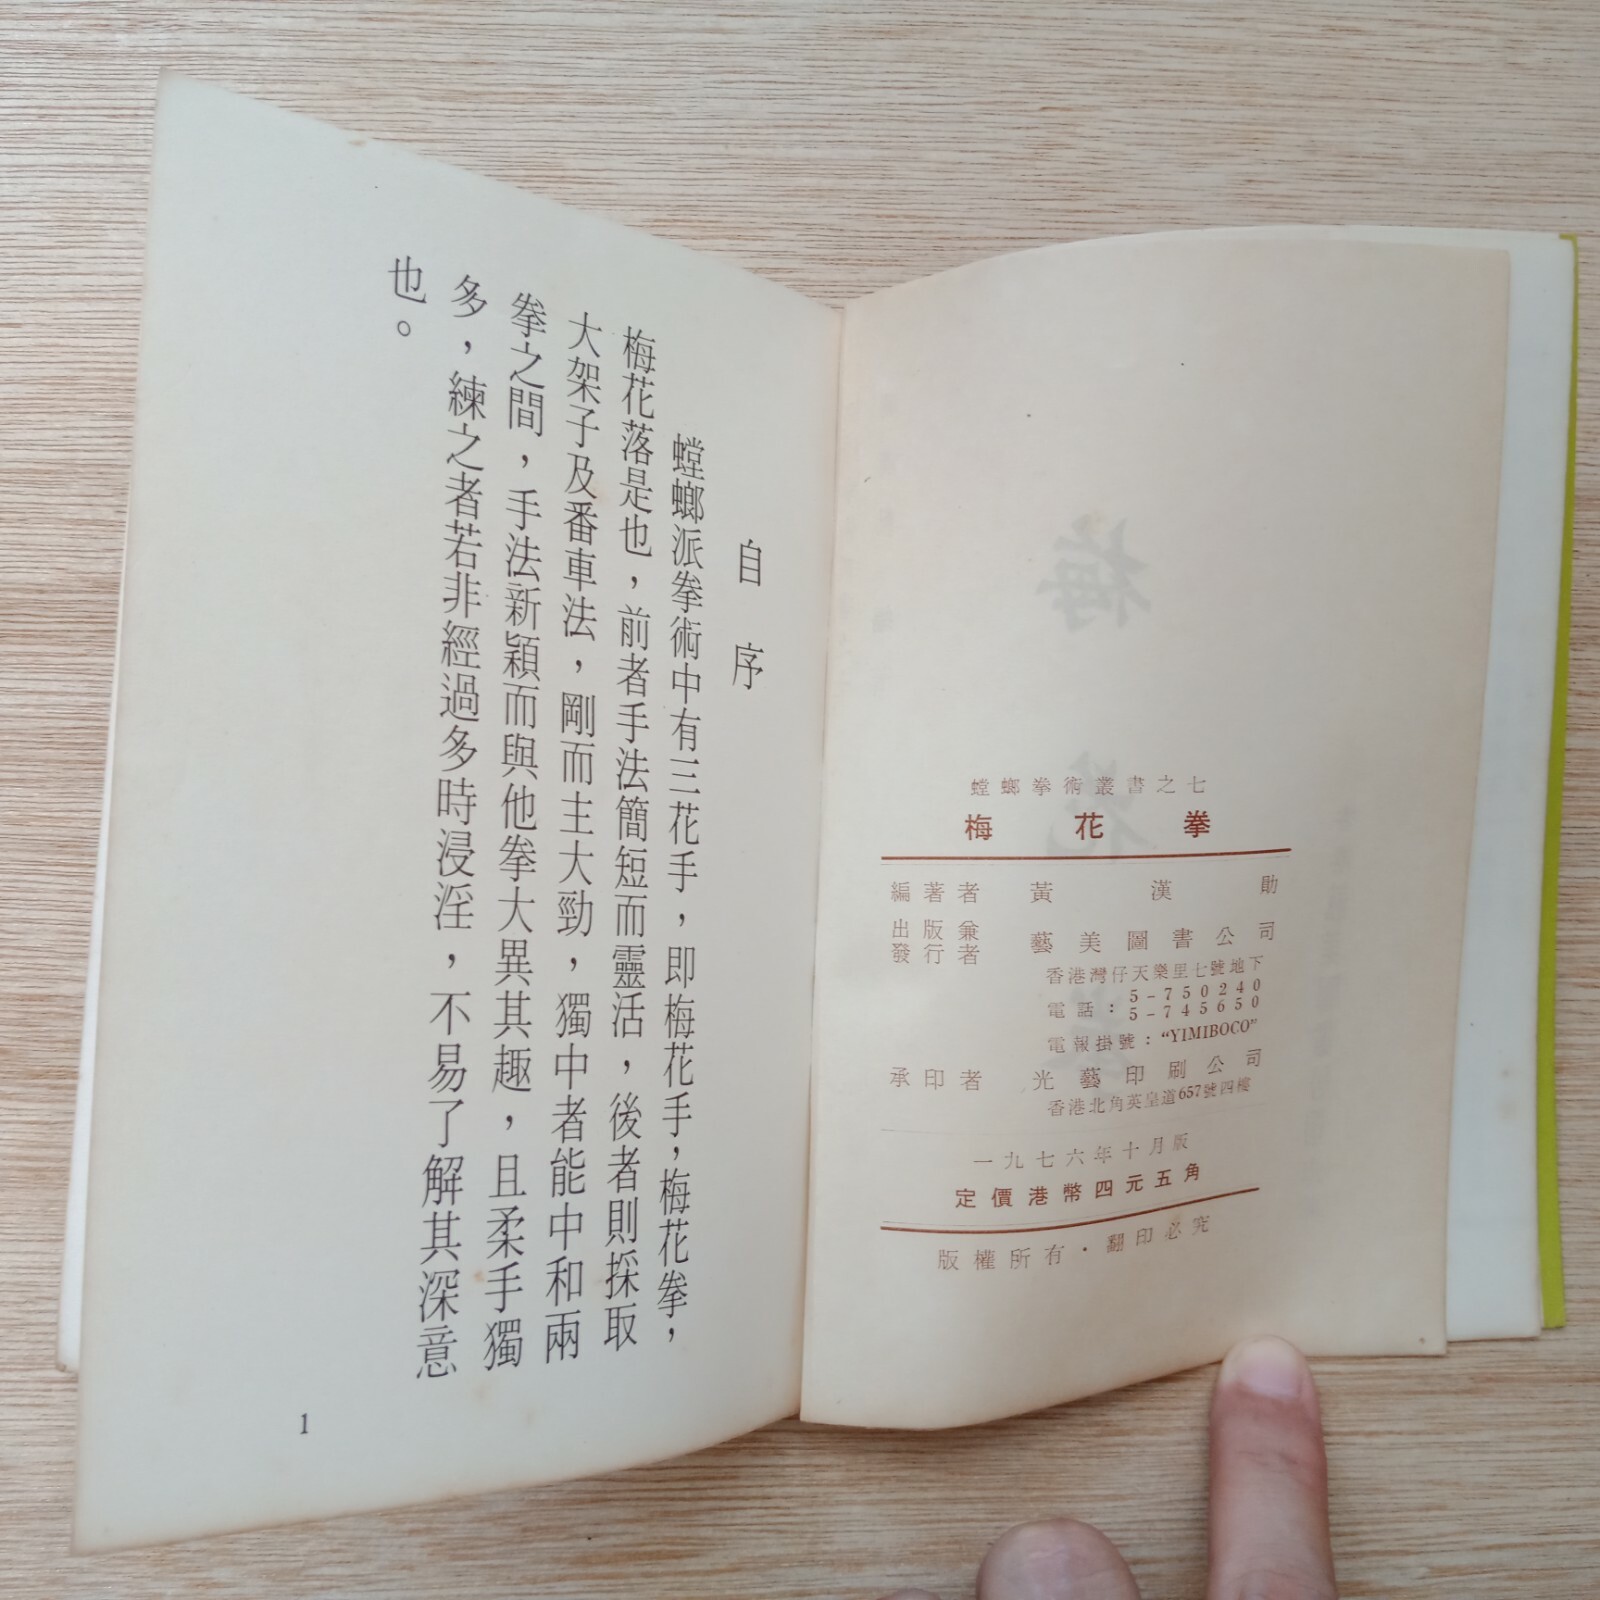 自序
螳螂派拳術中有三花手，即梅花手，梅花拳，
梅花落是也，前者手法簡短而靈活，後者則採取
大架子及番車法，剛而主大勁，獨中者能中和兩
拳之間，手法新穎而與他拳大異其趣，且柔手獨
多，練之者若非經過多時浸淫，不易了解其深意
也。
1
螳螂拳術叢書之七
梅花拳
編著者 黃漢勛
出版兼發行者 藝美圖書公司
香港灣仔天樂里七號地下
電話：5-750240
5-745650
電報掛號："YIMIBOCO"
承印者 光藝印刷公司
香港北角英皇道657號四樓
一九七六年十月版
定價港幣四元五角
版權所有·翻印必究